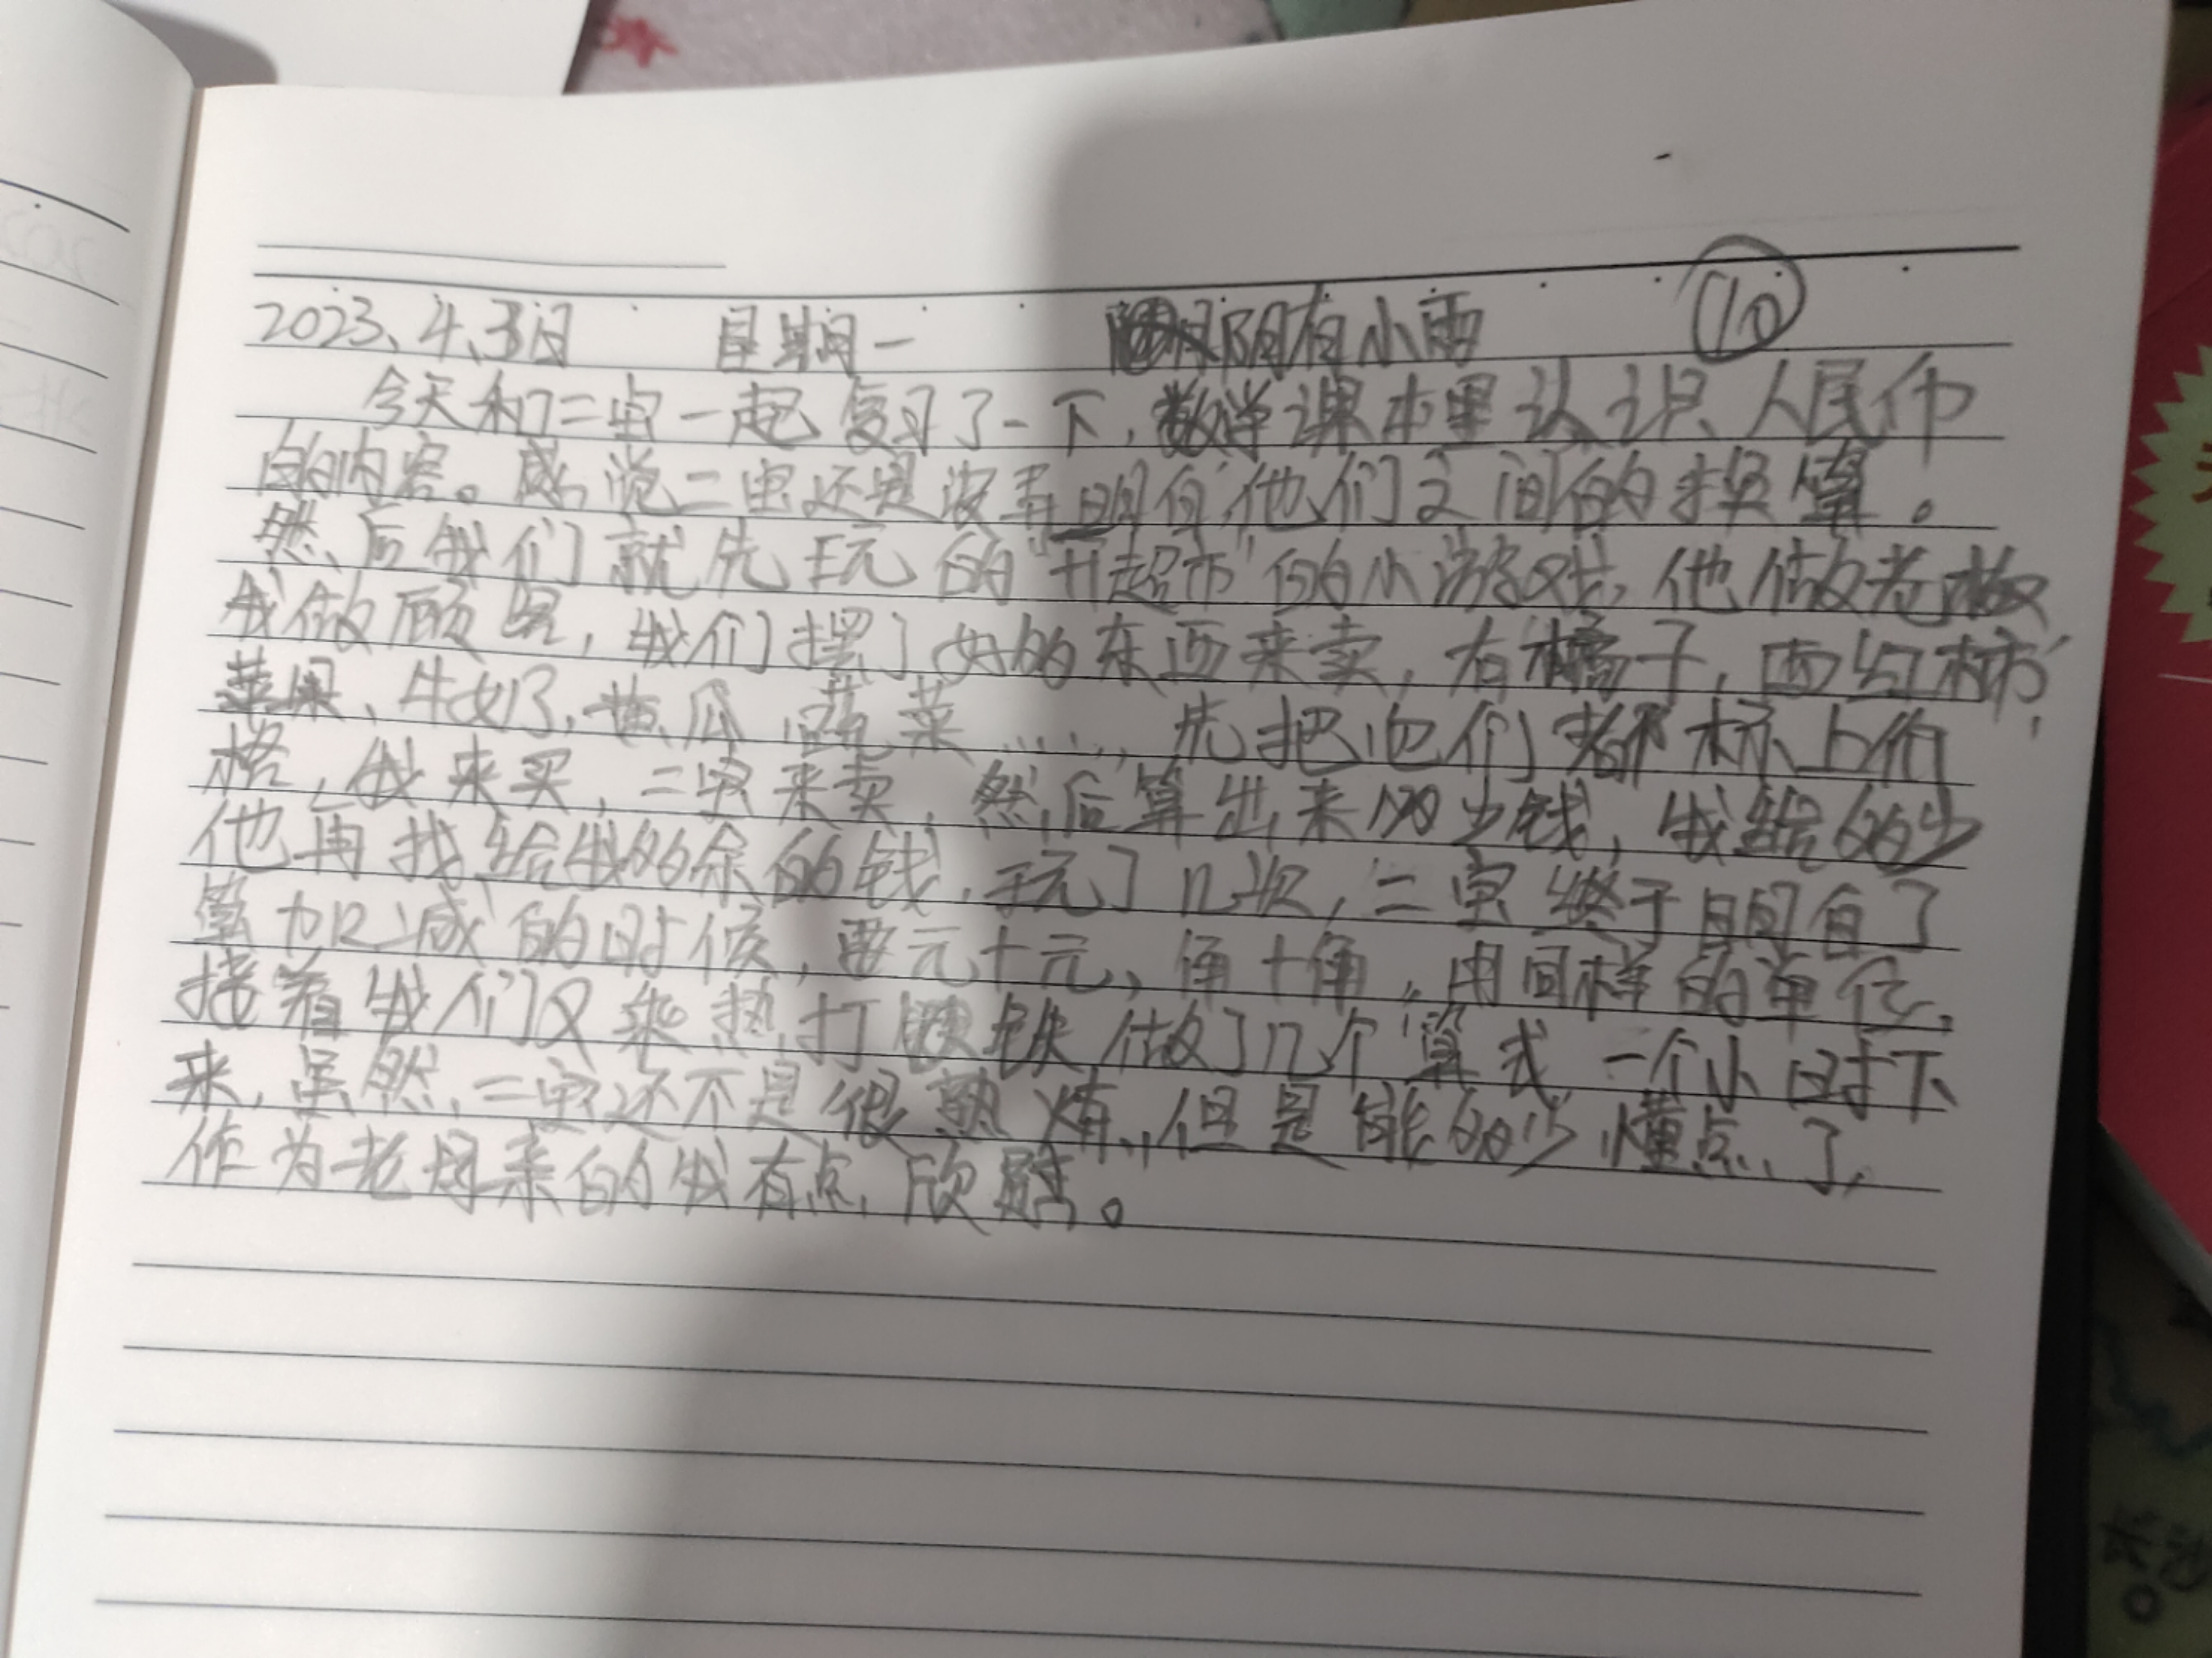 2023、4、3日 星期一 阴有小雨 ⑩
今天和二宝一起复习了一下,数学课本里认识人民币
的内容。感觉二宝还是没弄明白他们之间的换算。
然后我们就先玩的“开超市”的小游戏,他做老板
我做顾客,我们摆了好多东西来卖,有橘子,西红柿,
苹果、牛奶、黄瓜、蔬菜……,先把它们都标上价
格,我来买,二宝来卖,然后算出来多少钱,我给多少
他再找给我多余的钱,玩了几次,二宝终于明白了
算加减的时候,要元+元,角+角,用同样的单位,
接着我们又来热打铁做了几个算式 一个小时下
来,虽然,二宝还不是很熟炼,但是能多少懂点了,
作为老母亲的我有点欣慰。